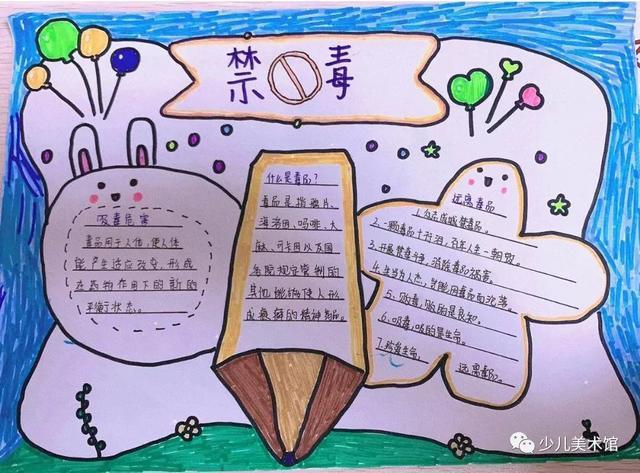 禁毒
吸毒危害
毒品用于人体,使人体
能产生适应改变,形成
在药物作用下的新的
平衡状态。
什么是毒品?
毒品是指鸦片、
海洛因、吗啡、大
麻、可卡因以及国
务院规定管制的
其他能够使人形
成瘾癖的精神药品。
远离毒品
1.众志成城禁毒品。
2.一颗毒品十行泪,百年人生一朝毁。
3.开展禁毒斗争,消除毒品祸害。
5.贩毒,贩的是良知。
6.吸毒,吸的是生命。
7.珍爱生命,远离毒品。
少儿美术馆